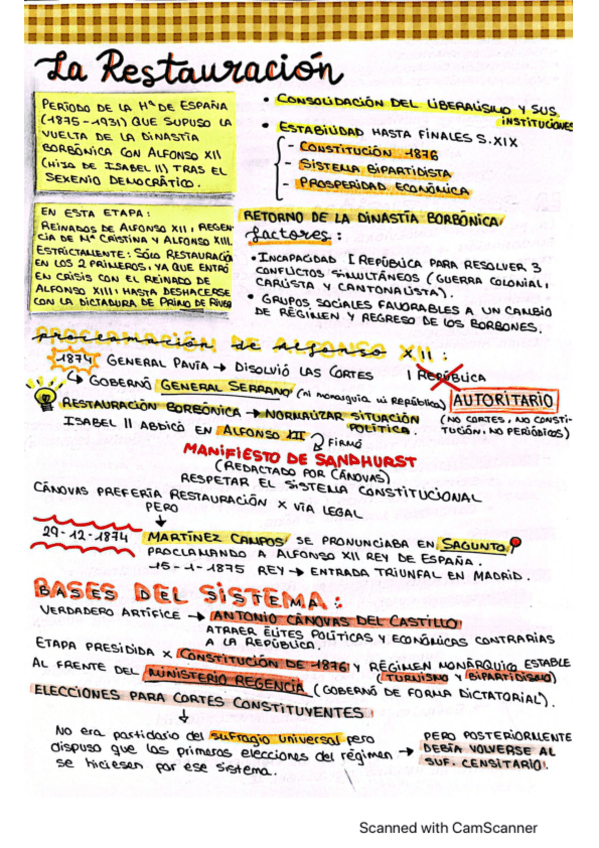 La Restauración
PERÍODO DE LA Hª DE ESPAÑA
(1875-1931) QUE SUPUSO LA
VUELTA DE LA DINASTÍA
BORBÓNICA CON ALFONSO XII
(HIJO DE ISABEL II) TRAS EL
SEXENIO DEMOCRÁTICO.
• CONSOLIDACIÓN DEL LIBERALISMO Y SUS
INSTITUCIONES
• ESTABILIDAD HASTA FINALES S.XIX
- CONSTITUCIÓN 1876
- SISTEMA BIPARTIDISTA
- PROSPERIDAD ECONÓMICA
EN ESTA ETAPA:
REINADOS DE ALFONSO XII, REGEN-
CIA DE Mª CRISTINA Y ALFONSO XIII.
ESTRICTAMENTE: SÓLO RESTAURACIÓN
EN LOS 2 PRIMEROS, YA QUE ENTRÓ
EN CRISIS CON EL REINADO DE
ALFONSO XIII, HASTA DESHACERSE
CON LA DICTADURA DE PRIMO DE RIVERA
RETORNO DE LA DINASTÍA BORBÓNICA
factores:
• INCAPACIDAD I REPÚBLICA PARA RESOLVER 3
CONFLICTOS SIMULTÁNEOS (GUERRA COLONIAL,
CARLISTA Y CANTONALISTA).
• GRUPOS SOCIALES FAVORABLES A UN CAMBIO
DE RÉGIMEN Y REGRESO DE LOS BORBONES.
PROCLAMACIÓN DE ALFONSO XII:
1874 GENERAL PAVÍA → DISOLVIÓ LAS CORTES I REPÚBLICA
↳ GOBERNÓ GENERAL SERRANO (ni monarquía ni República) AUTORITARIO
(NO CORTES, NO CONSTI-
TUCIÓN, NO PERIÓDICOS)
RESTAURACIÓN BORBÓNICA → NORMALIZAR SITUACIÓN
POLÍTICA.
ISABEL II ABDICÓ EN ALFONSO XII
FIRMÓ
MANIFIESTO DE SANDHURST
(REDACTADO POR CÁNOVAS)
RESPETAR EL SISTEMA CONSTITUCIONAL
CÁNOVAS PREFERÍA RESTAURACIÓN X VÍA LEGAL
PERO
29-12-1874 MARTÍNEZ CAMPOS SE PRONUNCIABA EN SAGUNTO
PROCLAMANDO A ALFONSO XII REY DE ESPAÑA.
15-1-1875 REY → ENTRADA TRIUNFAL EN MADRID.
BASES DEL SISTEMA:
VERDADERO ARTÍFICE → ANTONIO CÁNOVAS DEL CASTILLO
ATRAER ÉLITES POLÍTICAS Y ECONÓMICAS CONTRARIAS
A LA REPÚBLICA.
ETAPA PRESIDIDA X CONSTITUCIÓN DE 1876 Y RÉGIMEN MONÁRQUICO ESTABLE
(TURNISMO Y BIPARTIDISMO)
AL FRENTE DEL MINISTERIO REGENCIA (GOBERNÓ DE FORMA DICTATORIAL).
ELECCIONES PARA CORTES CONSTITUYENTES
No era partidario del sufragio universal pero
dispuso que las primeras elecciones del régimen →
se hiciesen por ese sistema.
PERO POSTERIORMENTE
DEBÍA VOLVERSE AL
SUF. CENSITARIO.
Scanned with CamScanner